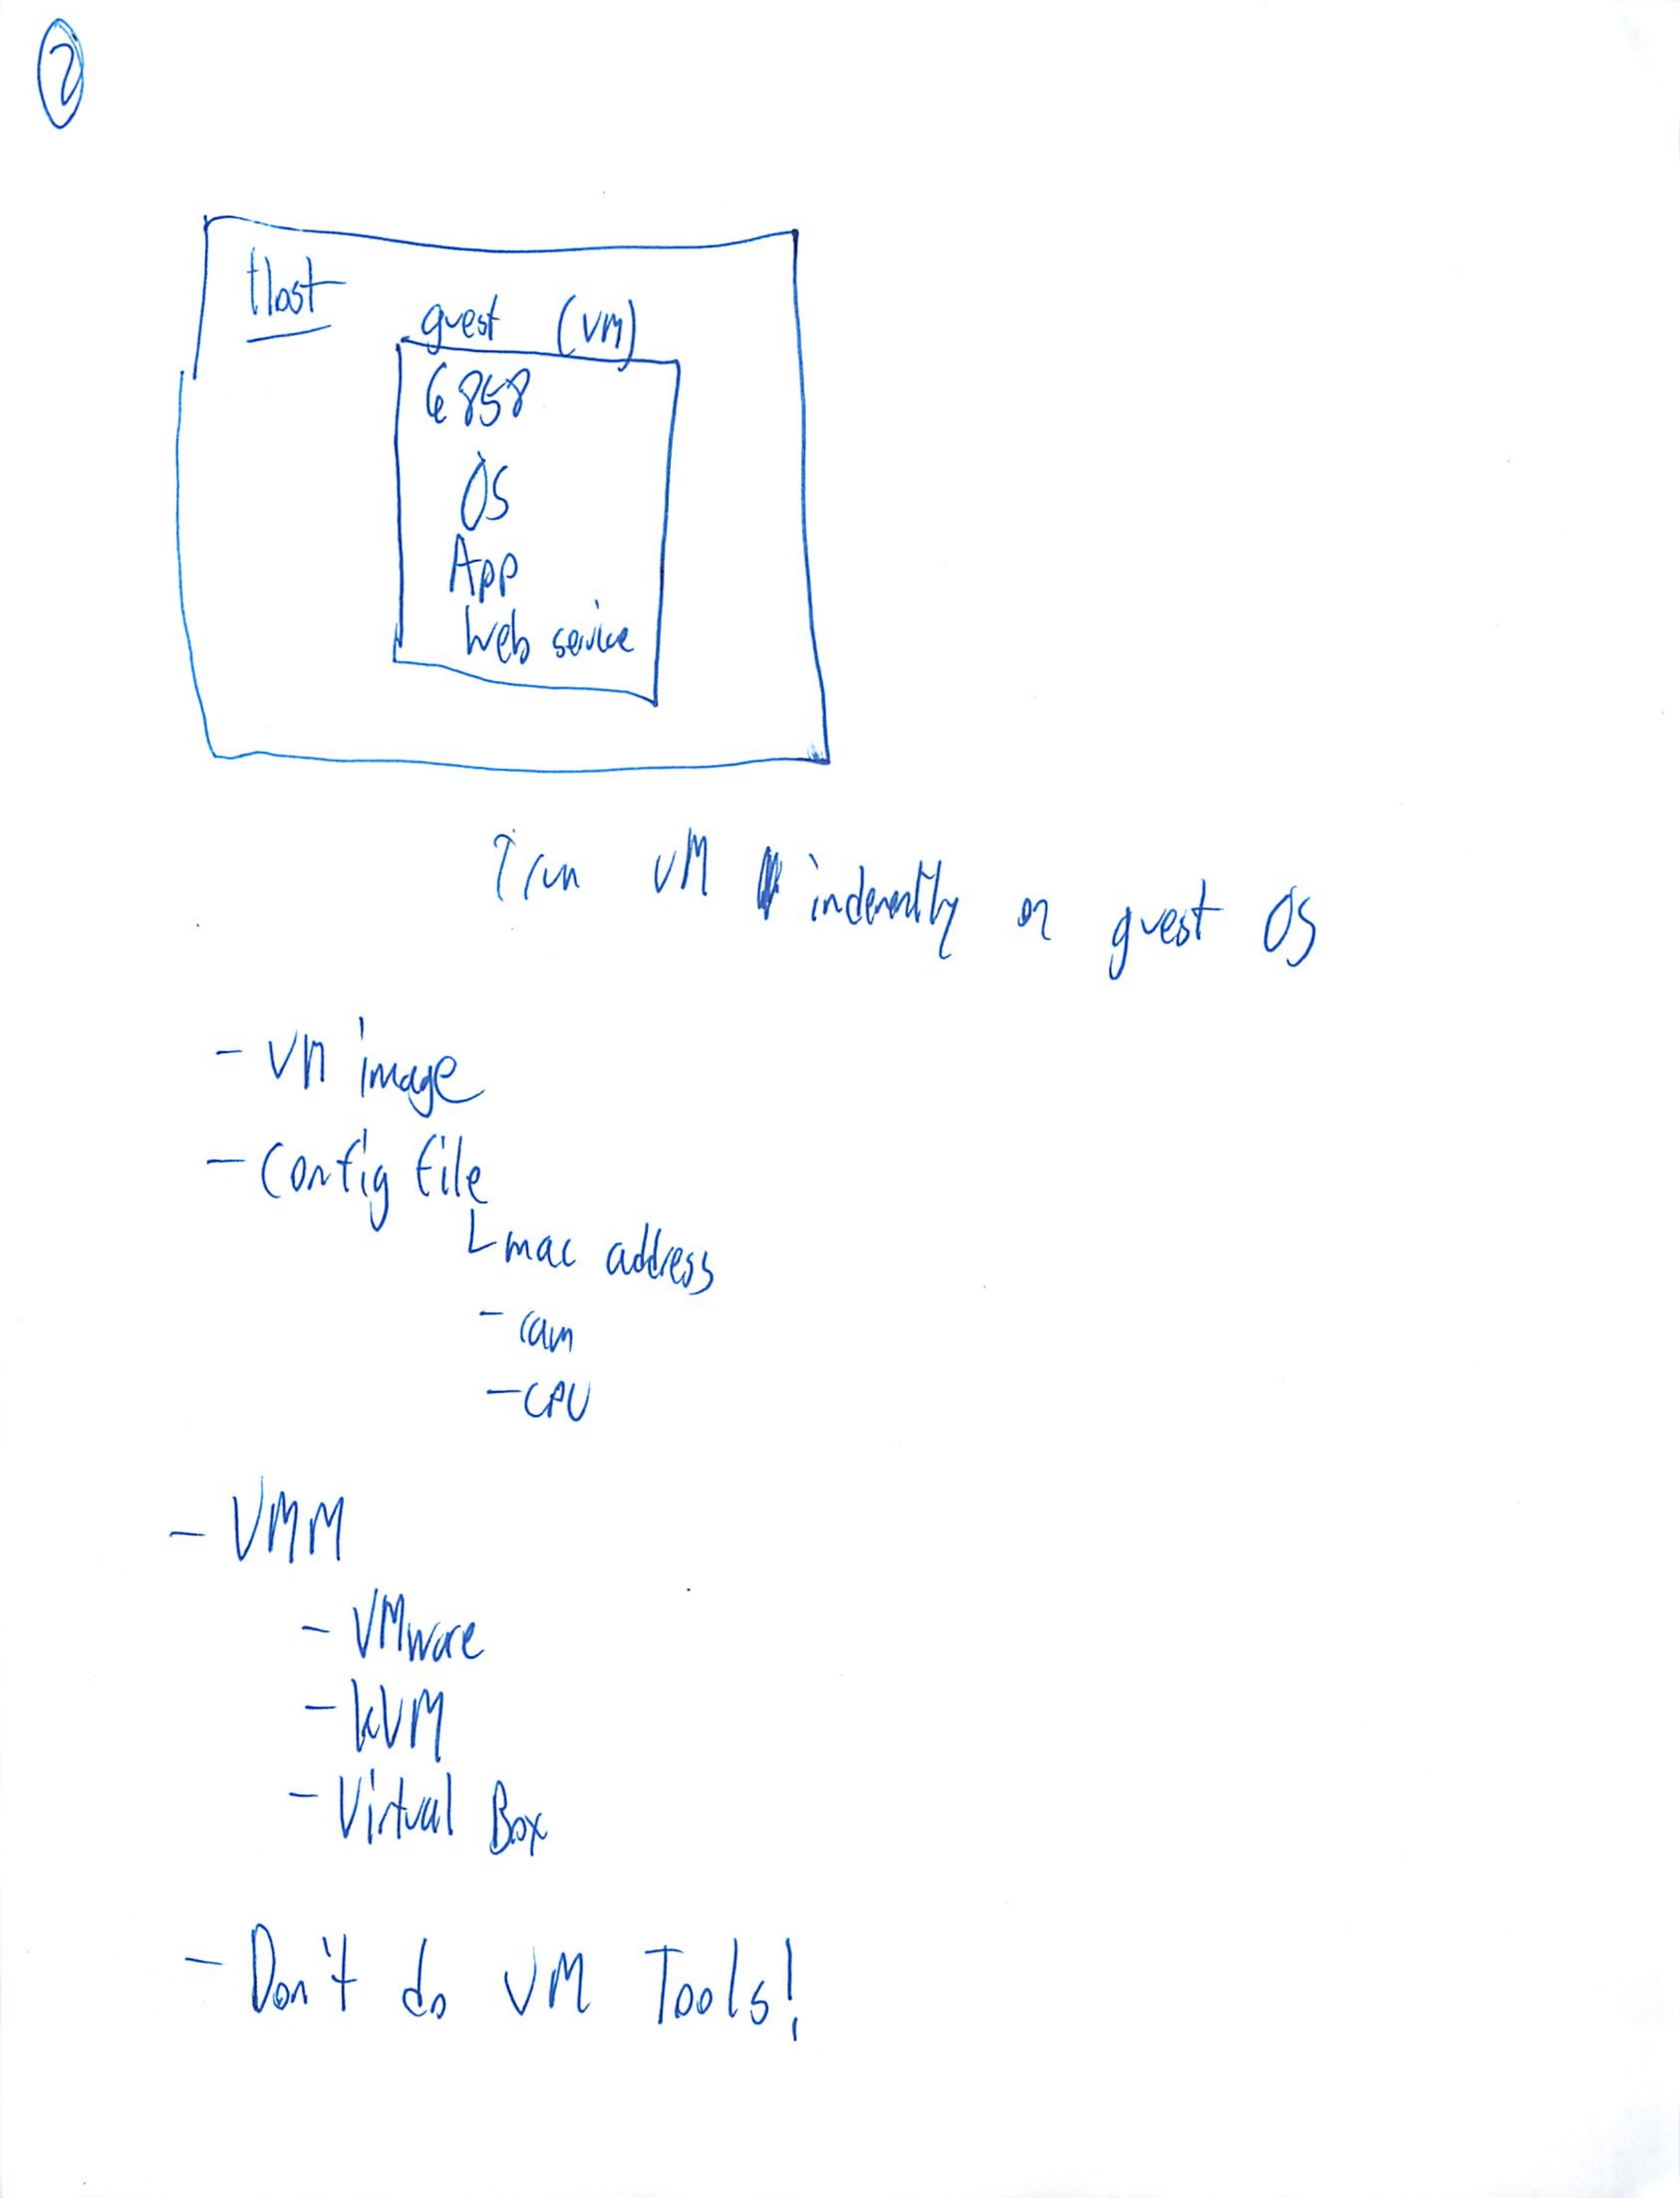 2
Host
guest (VM)
6858
OS
App
Web service
run VM on guest OS
- VM image
- Config file
mac address
- ram
- CPU
- VMM
- VMware
- KVM
- Virtual Box
- Don't do VM Tools!